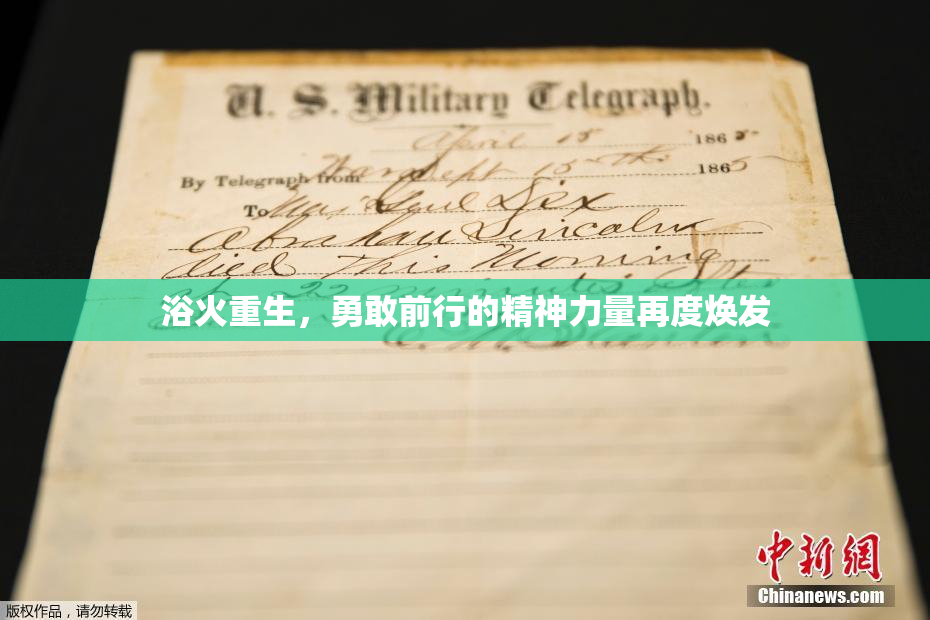 U. S. Military Telegraph.
April 15 1865
By Telegraph from War Dept 15th 1865
To Maj Genl Dix
Abraham Lincoln
died This Morning
at 22 minutes after
浴火重生，勇敢前行的精神力量再度焕发
E. M. Stanton
版权作品，请勿转载
中新网
Chinanews.com